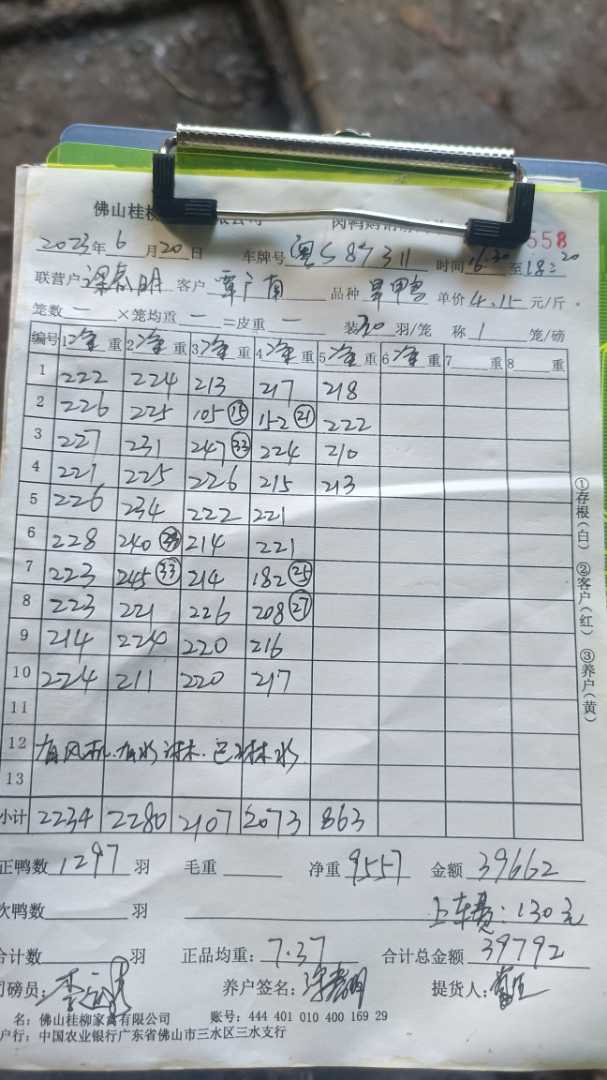 佛山桂柳 558
2023年6月20日 车牌号 粤S87311 时间16:30至18:20
联营户 客户 覃广南 品种 旱鸭 单价4.15元/斤
笼数 一 ×笼均重 一 =皮重 一 装30羽/笼 称1笼/磅
编号 1净重 2净重 3净重 4净重 5净重 6净重 7重 8重
1 222 224 213 217 218
2 226 225 105⑮ 152㉑ 222
3 227 231 247㉝ 224 210
4 221 225 226 215 213
5 226 234 222 221
6 228 240 214 221
7 223 245㉝ 214 182㉕
8 223 221 226 208㉗
9 214 224 220 216
10 224 211 220 217
11
12 有风机.有水淋.已淋水
13
小计 2234 2280 2107 2073 863
正鸭数1297羽 毛重 净重9557 金额39662
次鸭数 羽 上车费:130元
合计数 羽 正品均重:7.37 合计总金额39792
司磅员: 养户签名: 提货人:
名:佛山桂柳家禽有限公司 账号:444 401 010 400 169 29
户行:中国农业银行广东省佛山市三水区三水支行
①存根(白) ②客户(红) ③养户(黄)